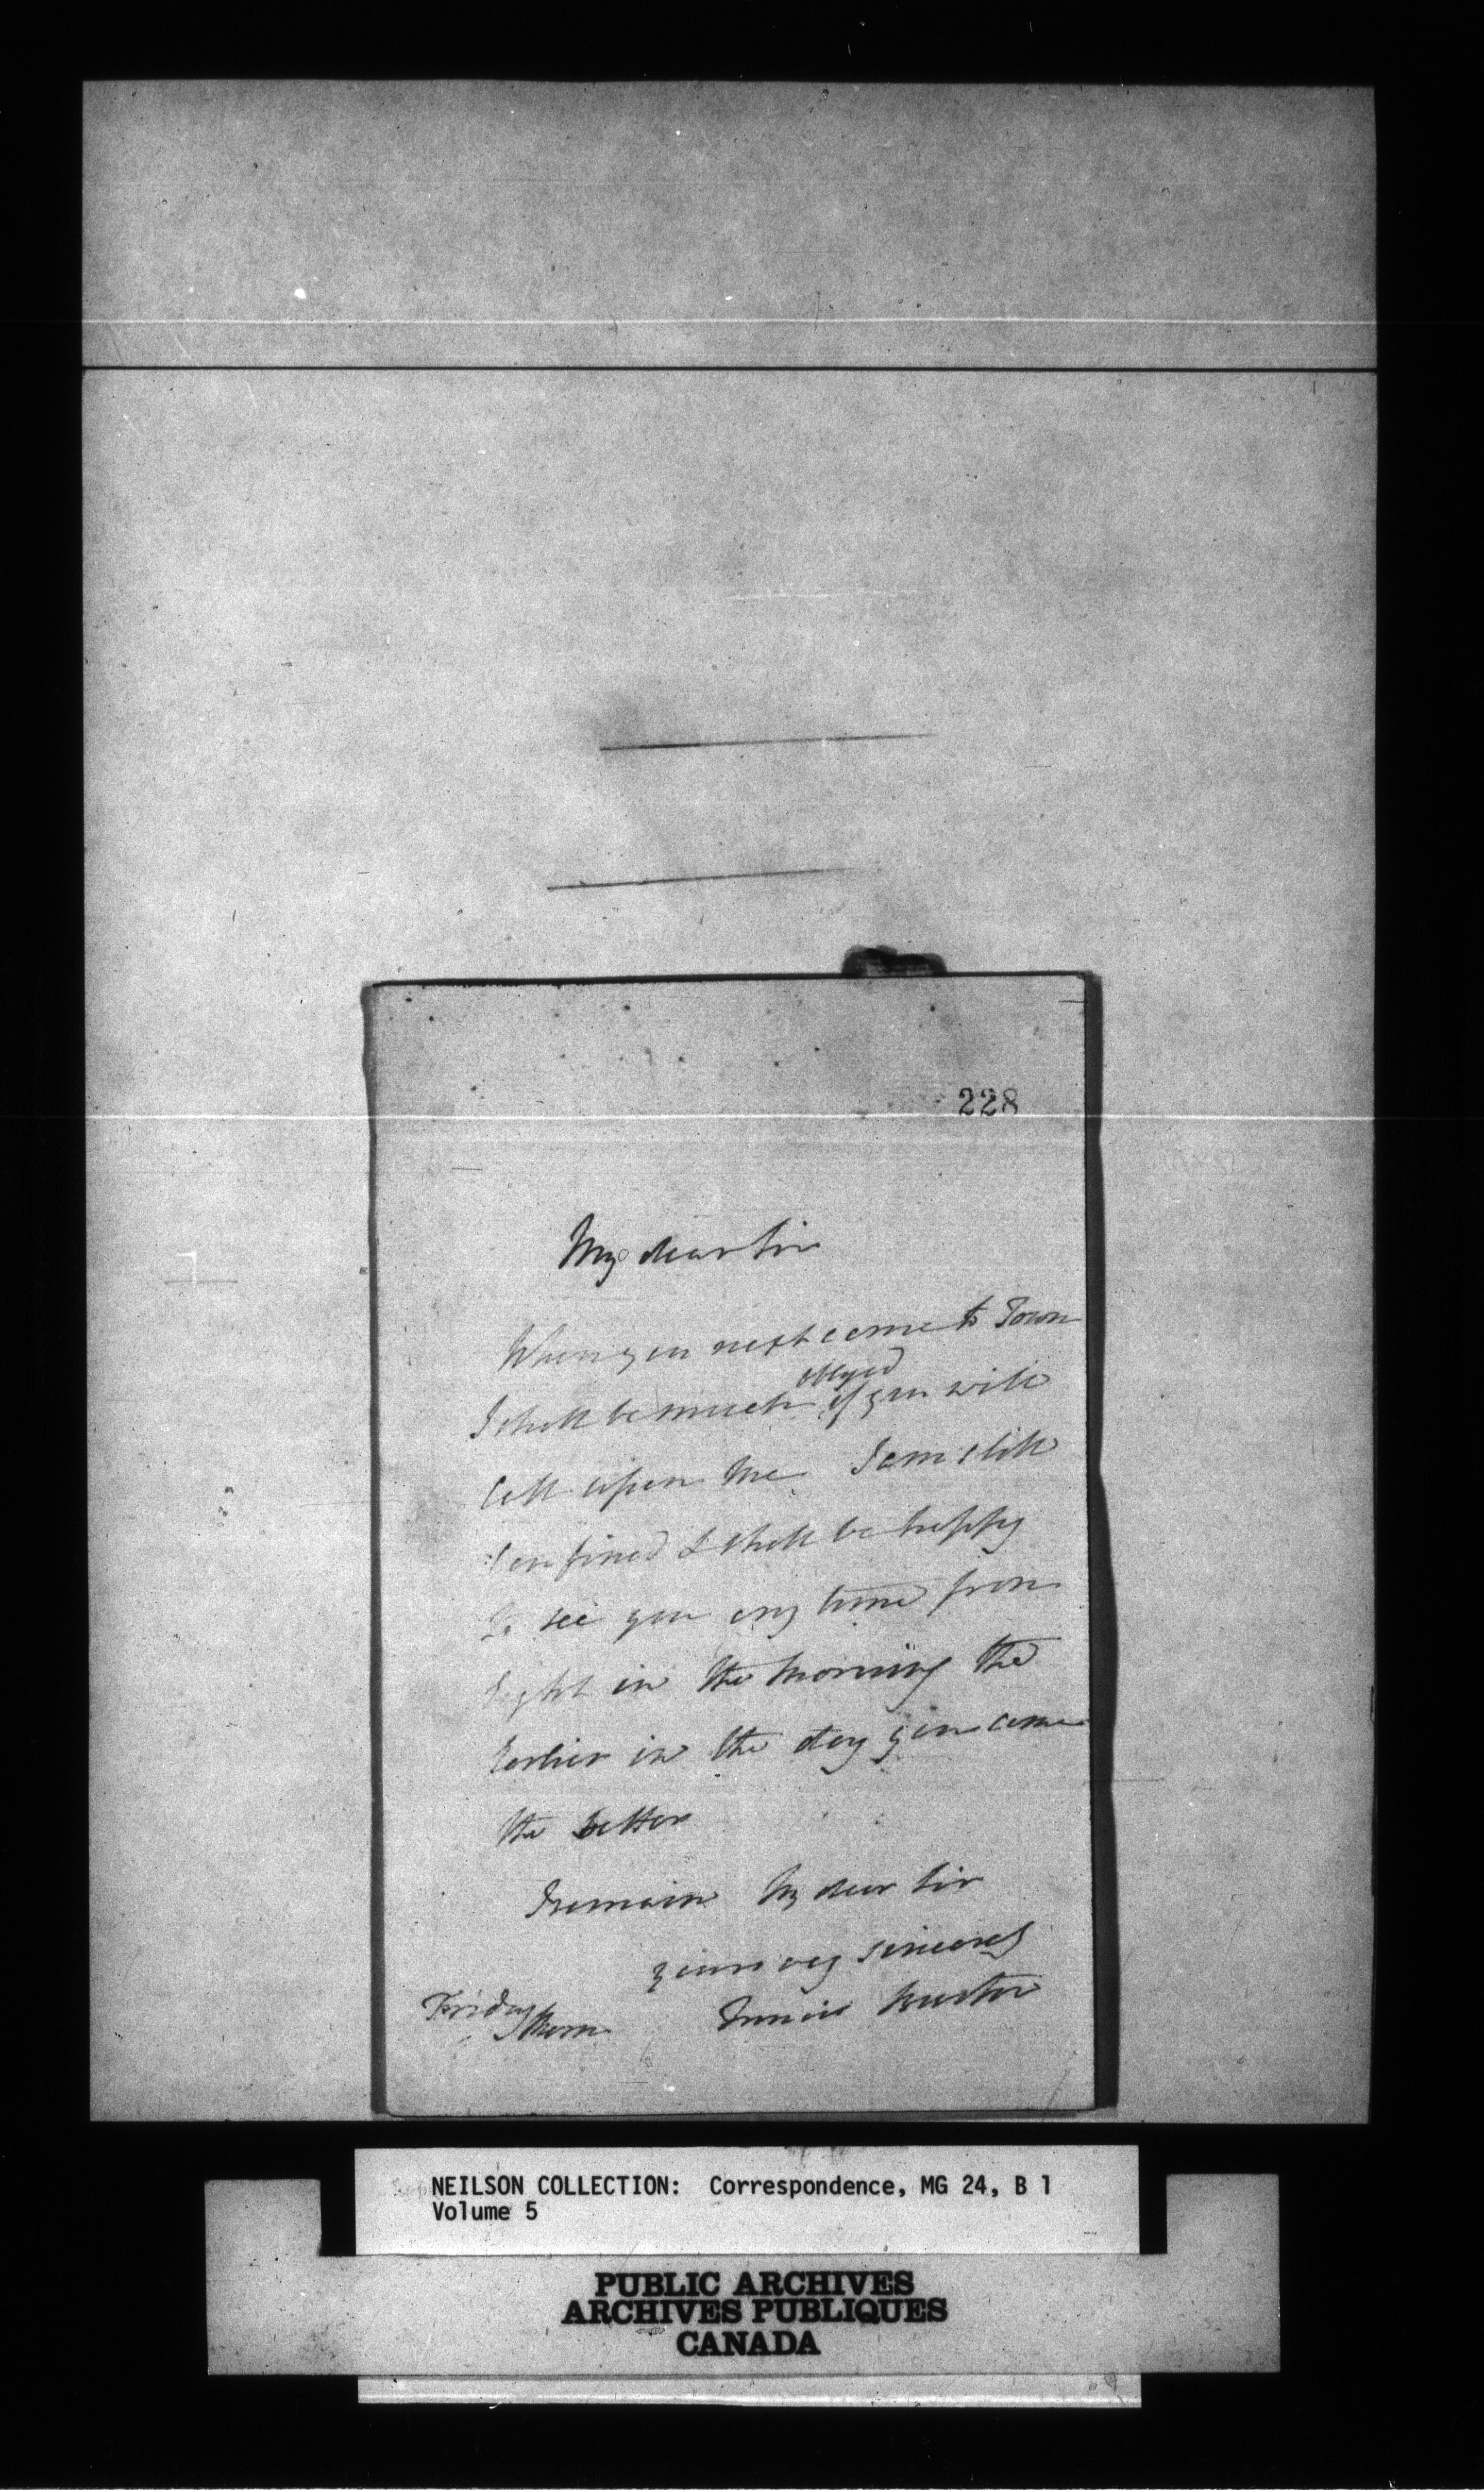 228
My dear Sir
When you next come to Town
I shall be much obliged if you will
Call upon Me I am still
Confined I shall be happy
To see you any time from
Eight in the Morning the
Earlier in the day you come
the better
I remain My dear Sir
yours very sincerely
Francis
Friday Morn
NEILSON COLLECTION: Correspondence, MG 24, B 1
Volume 5
PUBLIC ARCHIVES
ARCHIVES PUBLIQUES
CANADA